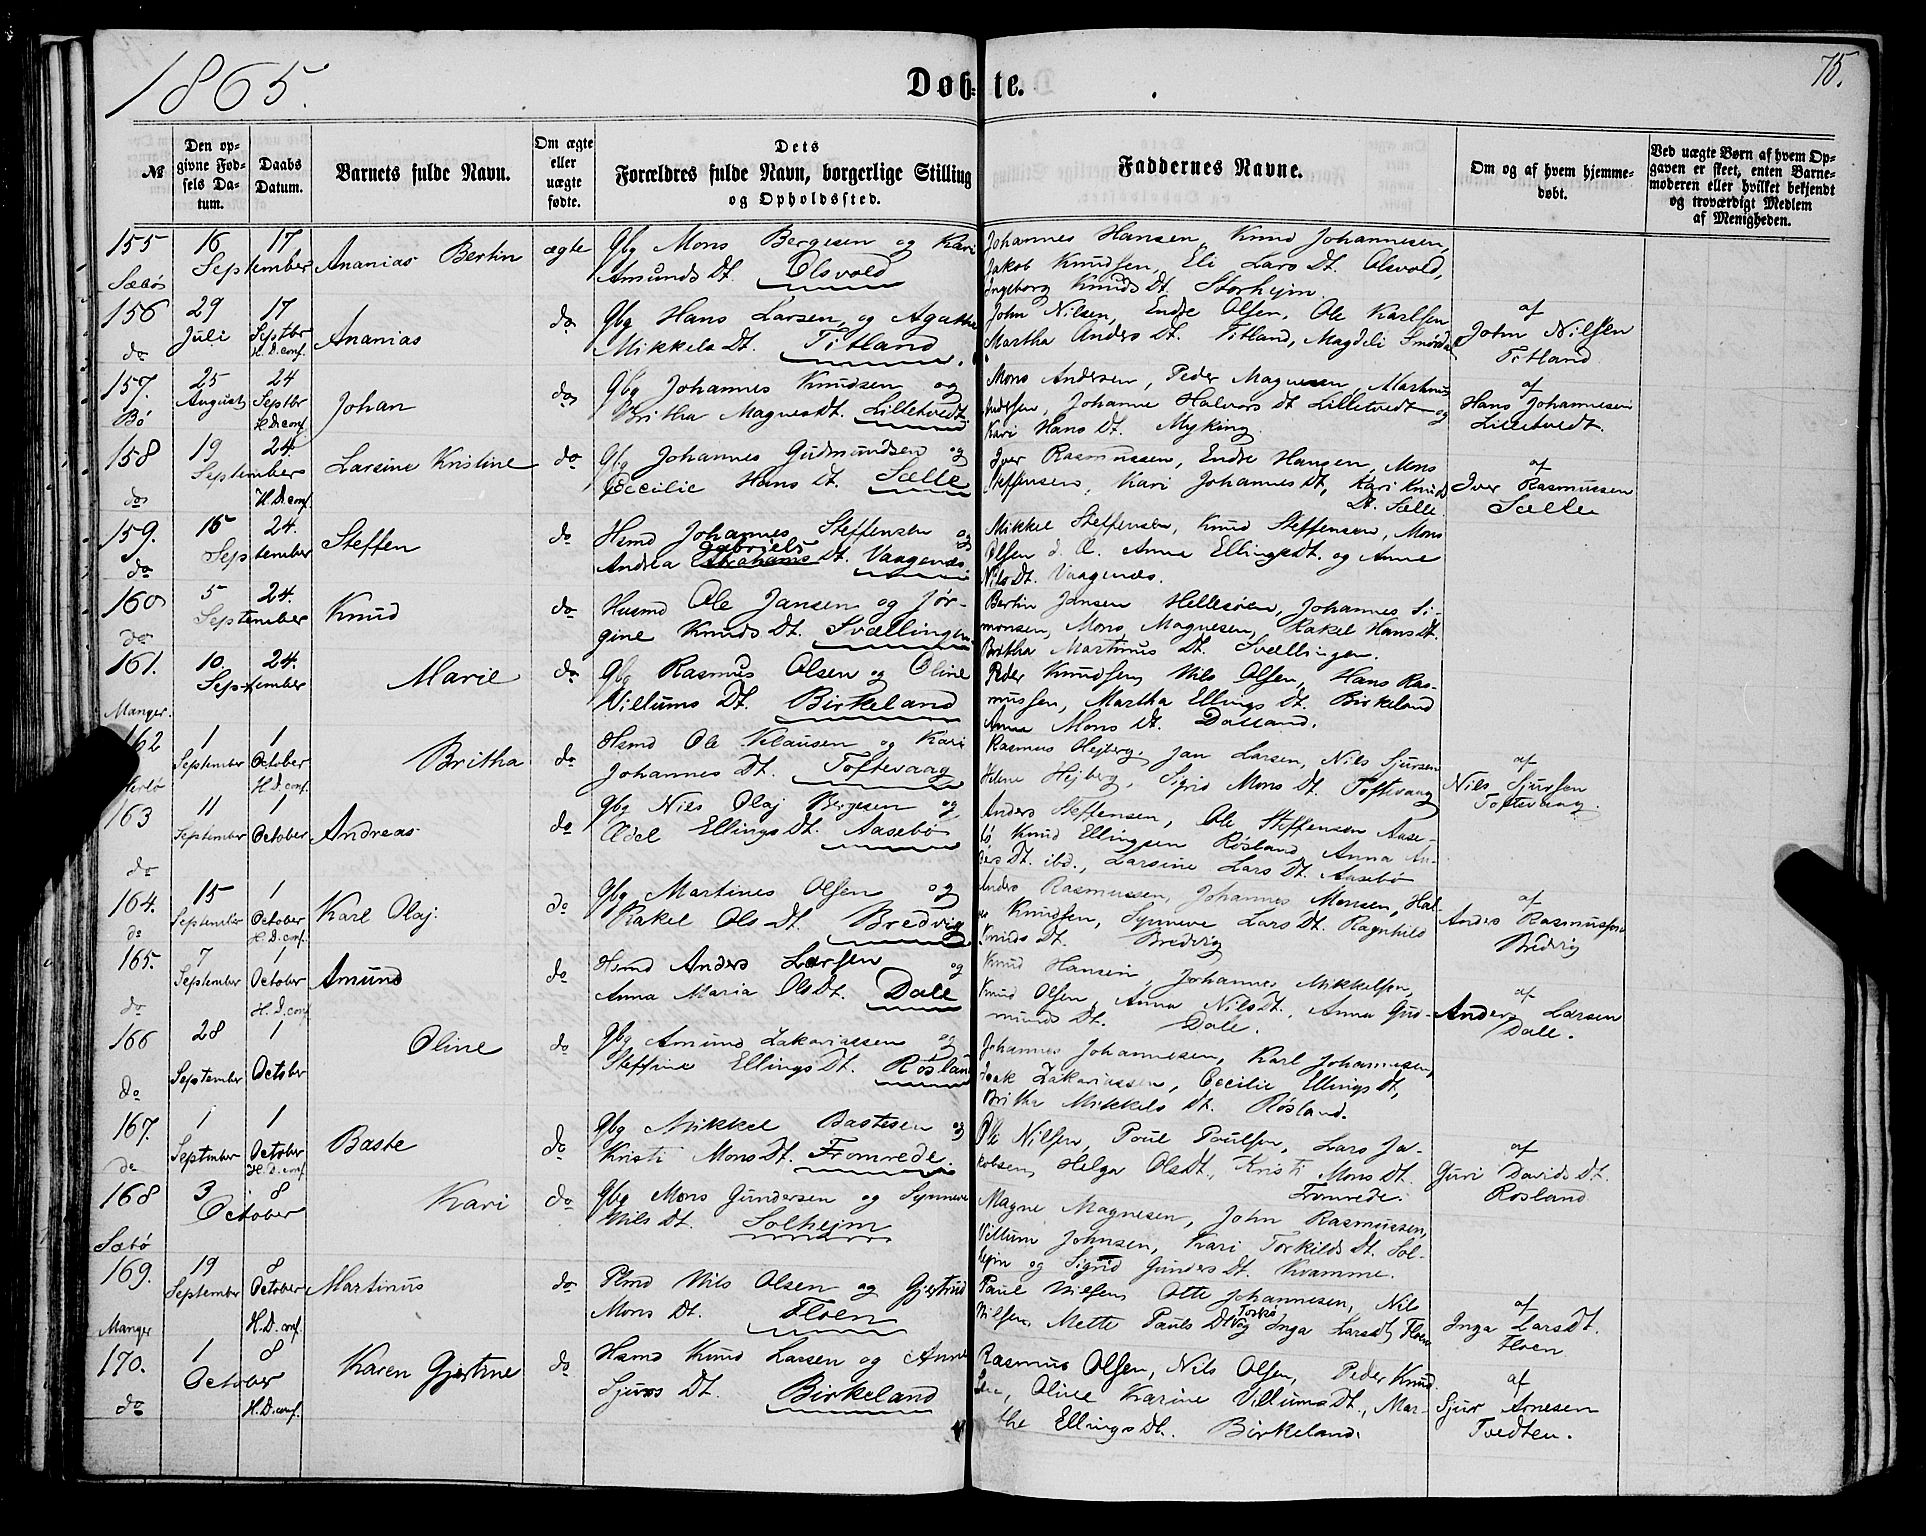 1865.
Døbte.
75.
№
Den opgivne Fødsels Datum.
Daabs Datum.
Barnets fulde Navn.
Om ægte eller uægte fødte.
Dets Forældres fulde Navn, borgerlige Stilling og Opholdssted.
Faddernes Navne.
Om og af hvem hjemmedøbt.
Ved uægte Børn af hvem Opgaven er skeet, enten Barnemoderen eller hvilket bekjendt og troværdigt Medlem af Menigheden.
155 Sæbø
16 September
17
Ananias Bertin
ægte
Gbg Mons Bergesen og Kari
Amunds Dt. Olsvold
Johannes Hansen, Knud Johannesen,
Jakob Knudsen, Eli Lars Dt. Olsvold,
Ingeborg Knuds Dt. Storhejm
156 do
29 Juli
17 Septbr H.D. conf.
Ananias
do
Gbg Hans Larsen og Agathe
Mikkels Dt. Titland.
John Nilsen, Endre Olsen, Ole Karlsen
Martha Anders Dt. Titland, Magdeli
af
John Nilsen
Titland
157. Bø
25 August
24 Septbr H.D. conf
Johan
do
Gbg Johannes Knudsen og
Britha Magnes Dt. Lilletvedt
Mons Andersen, Peder Magnesen, Martinus
Andersen, Johanne Halvors Dt Lilletvedt og
Kari Hans Dt. Myking
af
Hans Johannesen
Lilletvedt.
158 do
19 September
24. H.D. conf.
Larsine Kristine
do
Gbg Johannes Gudmundsen og
Cecilie Hans Dt. Sælle
Iver Rasmussen, Endre Hansen, Mons
Steffensen, Kari Johannes Dt, Kari Knuds
Dt. Sælle
af
Iver Rasmussen
Sælle
159. do
15 September
24.
Steffen
do
Hsmd Johannes Steffensen og
Gabriels
Andrea Abrahams Dt. Vaagenæs.
Mikkel Steffensen, Knud Steffensen, Mons
Olsen d. Æ. Anna Ellings Dt. og Anne
Nils Dt. Vaagenæs.
160 do
5 September
24.
Knud
do
Husmd Ole Jansen og Jør-
gine Knuds Dt. Svællingen
Bertin Jansen Hellesøen, Johannes Si-
monsen, Mons Magnesen, Rakel Hans Dt.
Britha Martinus Dt. Svællingen.
161. Manger.
10. September
24.
Marie
do
Gbg Rasmus Olsen og Oline
Villums Dt. Birkeland
Peder Knudsen, Nils Olsen, Hans Ras-
mussen, Martha Ellings Dt. Birkeland
Anna Mons Dt. Dalland.
162
1 September
1 October H.D. conf.
Britha
do
Hsmd Ole Klausen og Kari
Johannes Dt. Toftevaag
Rasmus Hejberg, Jan Larsen, Nils Sjursen
Helene Hejberg, Sigrid Mons Dt. Toftevaag
af
Nils Sjursen
Toftevaag.
163 do
11 September
1 October
Andreas
do
Gbg Nils Olaj Bergesen og
Adel Ellings Dt. Aasebø
Anders Steffensen, Ole Steffensen Aase-
bø Knud Ellingsen Røsland Anna An-
ders Dt. ibd., Larsine Lars Dt. Aasebø
164. do
15 September
1 October H.D. conf.
Karl Olaj.
do
Gbg Martines Olsen og
Rakel Ols Dt. Bredvig
Anders Rasmussen, Johannes Monsen, Hal-
vor Knudsen, Synneve Lars Dt. Ragnhild
Knuds Dt. Bredvig
af
Anders Rasmussen
Bredvig
165. do
7 September
1 October H.D. conf
Amund
do
Hsmd Anders Larsen og
Anna Maria Ols Dt. Dale
Knud Hansen, Johannes Mikkelsen,
Knud Olsen, Anna Nils Dt. Anna Gud-
munds Dt. Dale.
af
Anders Larsen
Dale.
166 do
28 September
1 October
Oline
do
Gbg Amund Zakariassen og
Steffine Ellings Dt. Røsland
Johannes Johannesen, Karl Johannesen,
Isak Zakariassen, Cecilie Ellings Dt,
Britha Mikkels Dt. Røsland.
167. do
1 September
1 October H.D. conf.
Baste
do
Gbg Mikkel Bastesen og
Kristi Mons Dt. Fromrede.
Ole Nilsen, Poul Poulsen, Lars Ja-
kobsen, Helga Ols Dt., Kristi Mons Dt.
Fromrede.
af
Guri Davids Dt.
Rosland
168 Sæbø
3 October
8
Kari
do
Gbg Mons Gundersen og Synneve
Nils Dt. Solhejm
Magne Magnesen, John Rasmussen,
Villum Johnsen, Kari Torkilds Dt. Sol-
hejm og Sigrid Gunders Dt. Kvamme.
169. Manger
19 September
8 October H.D. conf.
Martinus
do
Plmd Nils Olsen og Gjertrud
Mons Dt. Floen
Paul Nilsen, Otte Johannesen, Nils
Nilsen, Mette Pauls Dt og Inga Lars Dt Floen
af
Inga Lars Dt.
Floen
170. do
1 October
8 H.D. conf.
Karen Gjertine
do
Hsmd Knud Larsen og Anne
Sjurs Dt. Birkeland
Rasmus Olsen, Nils Olsen, Peder Knud-
sen, Oline Karine Villums Dt., Mar-
the Ellings Dt. Birkeland.
af
Sjur Arnesen
Tvedten.